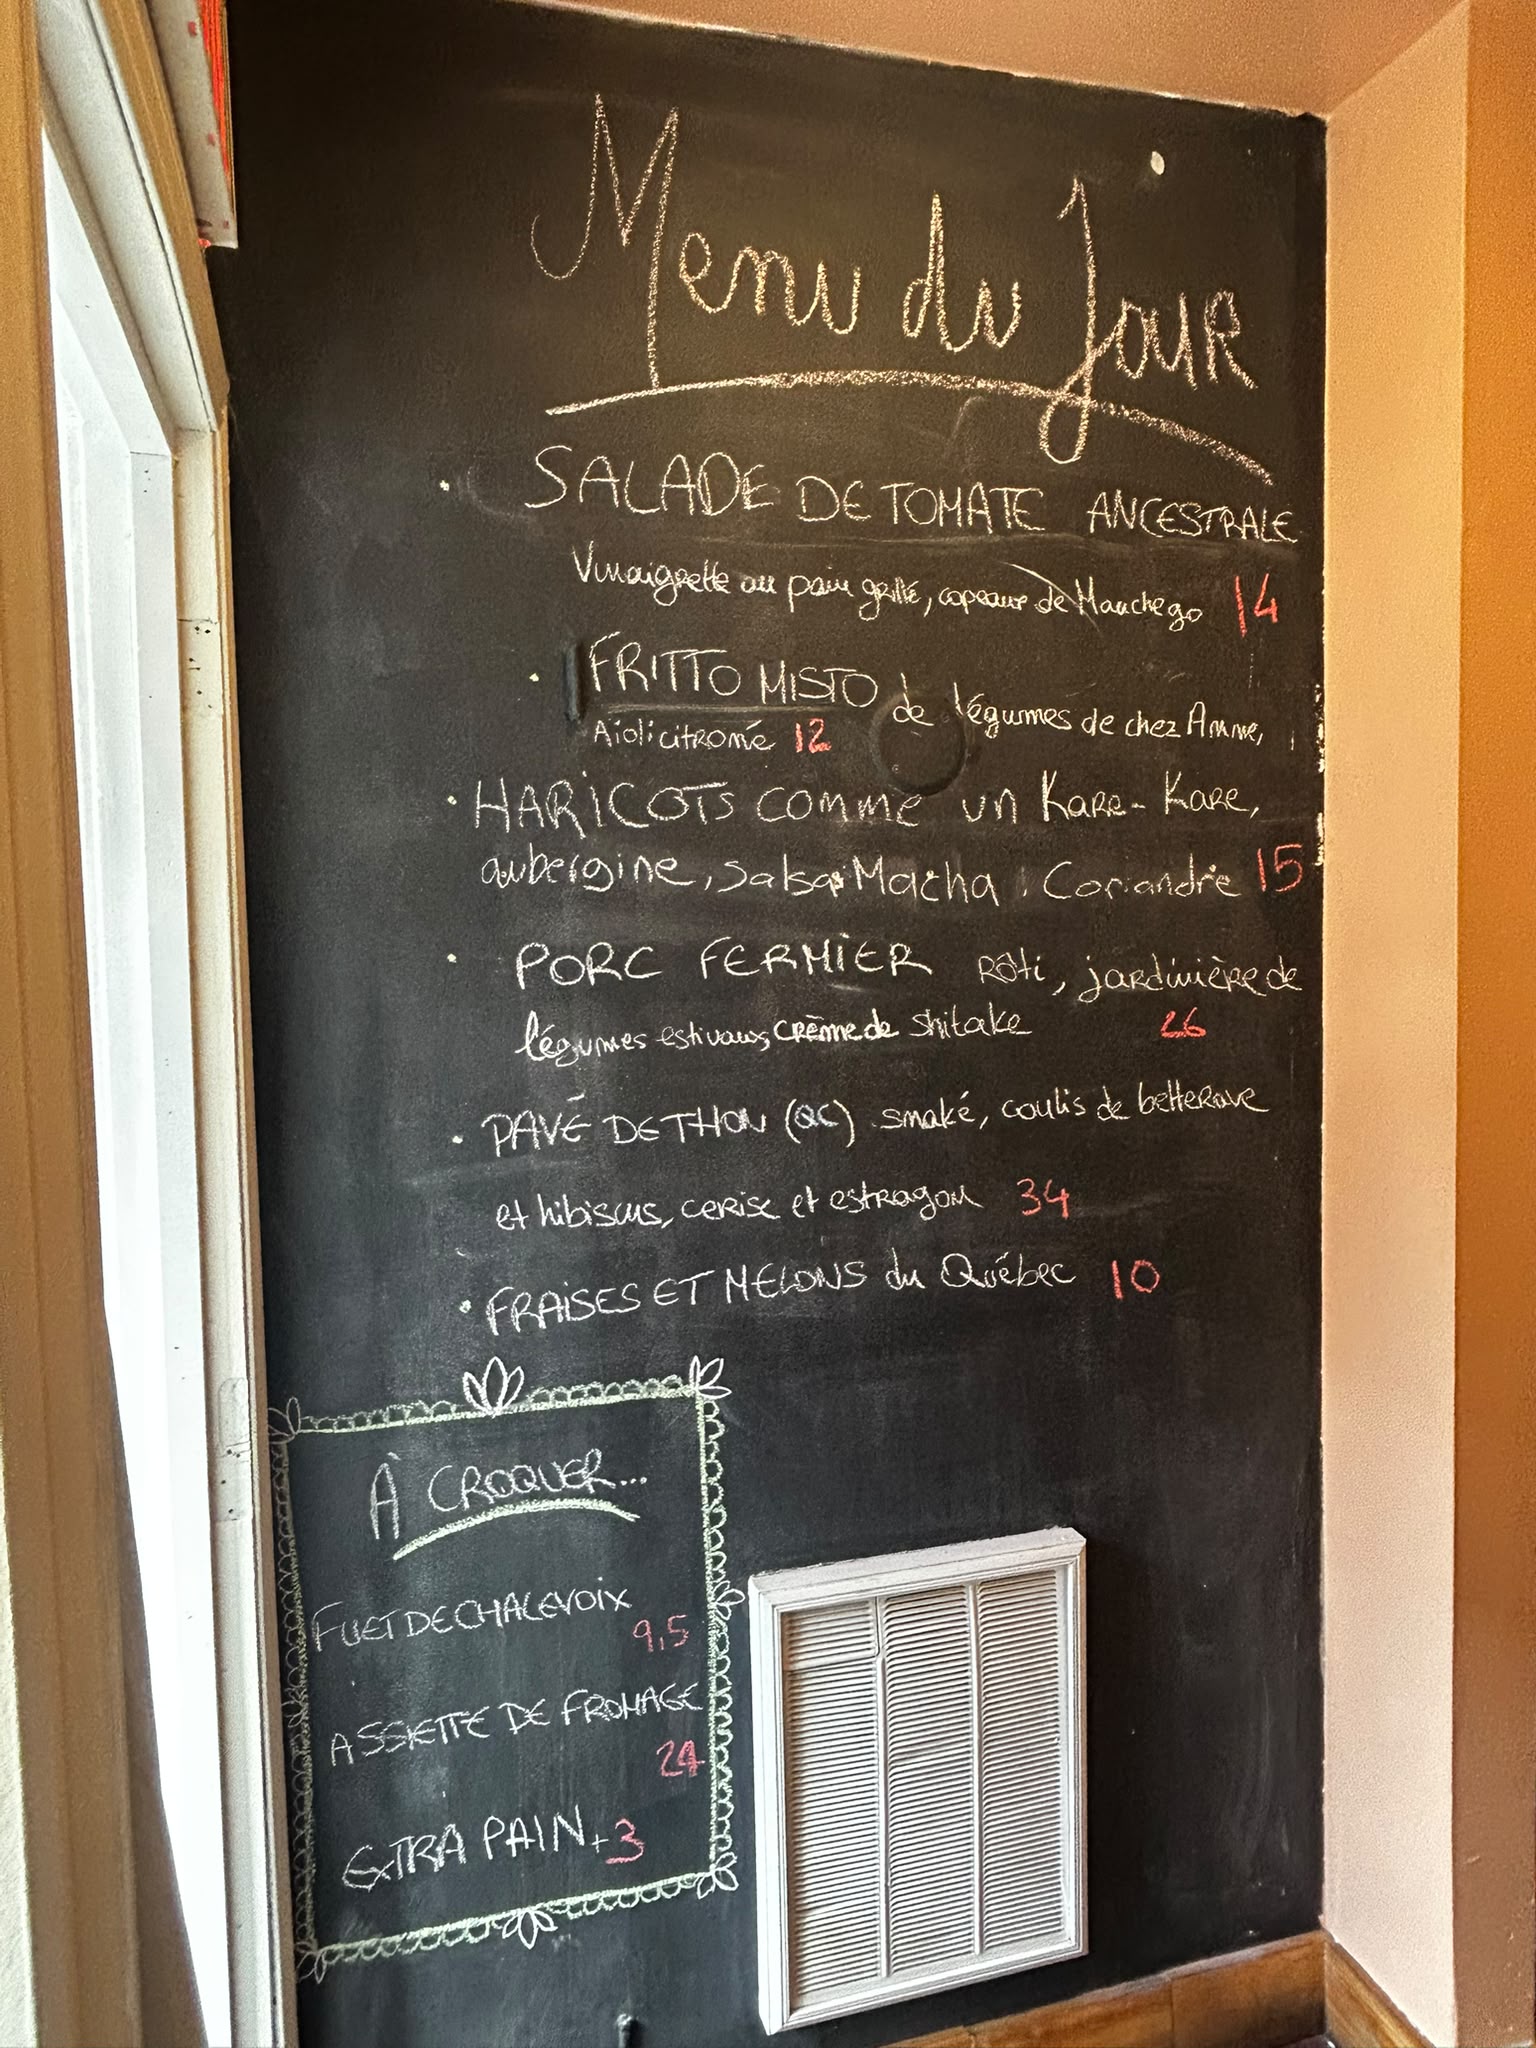 Menu du Jour
• SALADE DE TOMATE ANCESTRALE
Vinaigrette au pain grillé, copeaux de Manchego 14
• FRITTO MISTO de légumes de chez Anne,
Aïoli citronné 12
• HARICOTS COMME UN KARE-KARE,
aubergine, salsa Macha, Coriandre 15
• PORC FERMIER RÔTI, jardinière de
légumes estivaux, CRÈME de shitake 26
• PAVÉ DE THON (QC) smaké, coulis de betterave
et hibiscus, cerise et estragon 34
• FRAISES ET MELONS du Québec 10
À CROQUER...
FUET DE CHALEVOIX
9,5
ASSIETTE DE FROMAGE
24
EXTRA PAIN +3